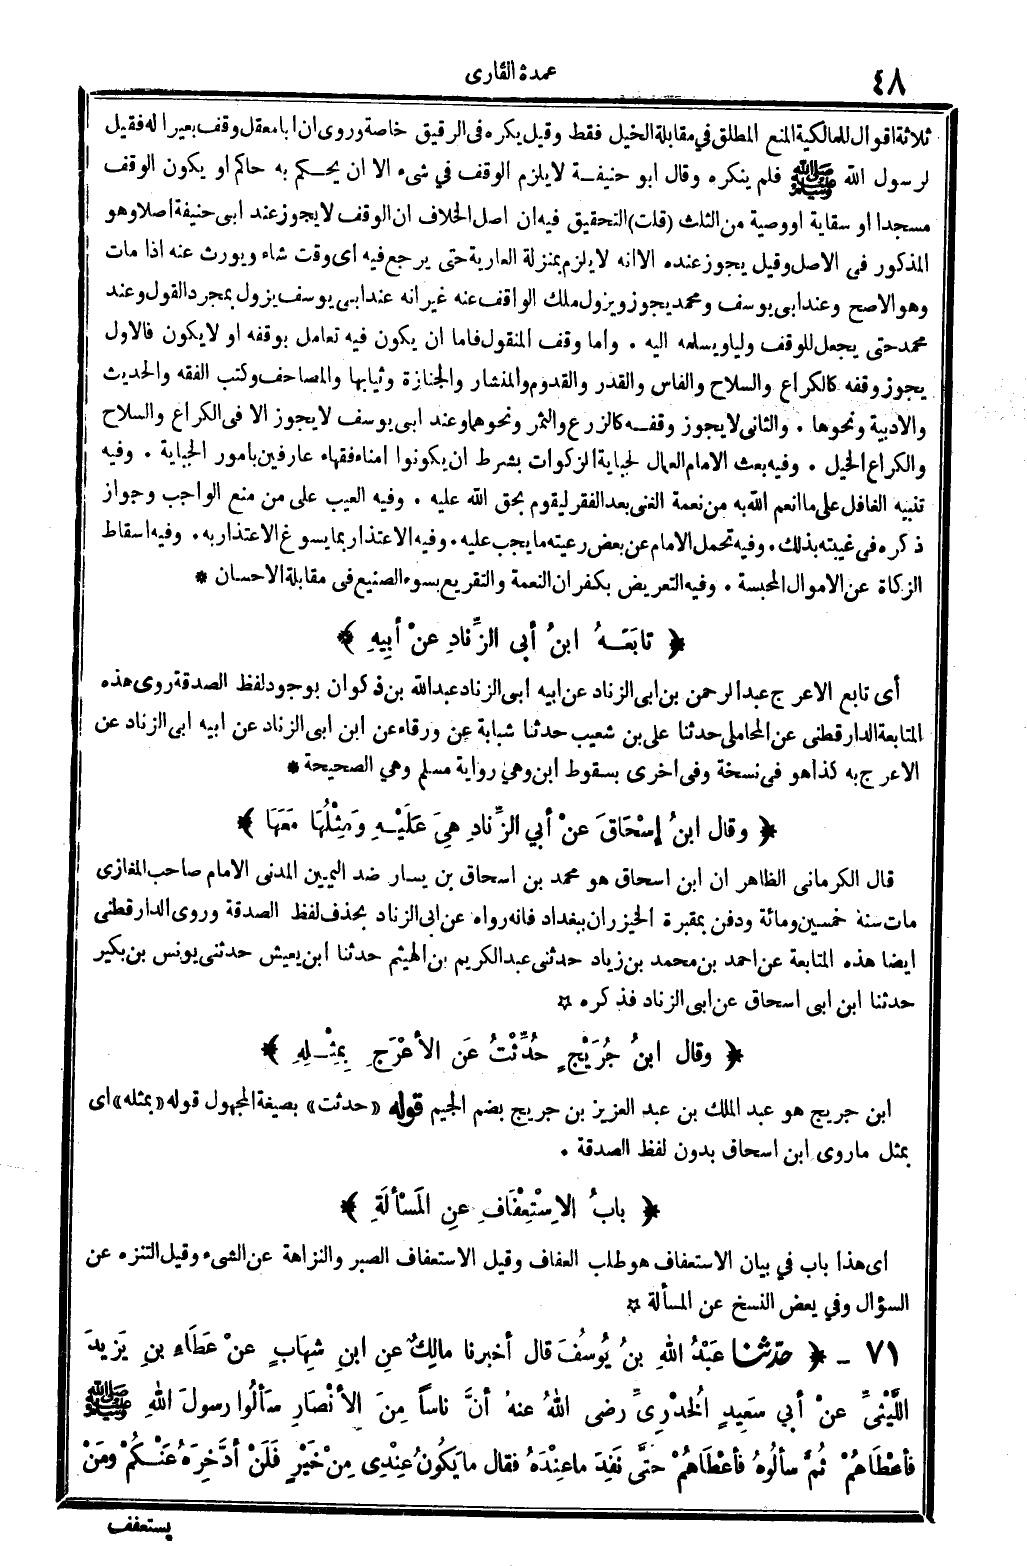 ٤٨
عمدة القارى
ثلاثة اقوال للمالكية المنع المطلق في مقابلة الخيل فقط وقيل يكره فى الرقيق خاصة وروى ان ابا معقل وقف بعيرا له فقيل
لرسول الله ﷺ فلم ينكره وقال ابو حنيفة لا يلزم الوقف في شىء الا ان يحكم به حاكم او يكون الوقف
مسجدا او سقاية او وصية من الثلث (قلت) التحقيق فيه ان اصل الخلاف ان الوقف لا يجوز عند ابى حنيفة اصلا وهو
المذكور فى الاصل وقيل يجوز عنده الا انه لا يلزم بمنزلة العارية حتى يرجع فيه اى وقت شاء ويورث عنه اذا مات
وهو الاصح وعند ابى يوسف ومحمد يجوز ويزول ملك الواقف عنه غير انه عند ابى يوسف يزول بمجرد القول وعند
محمد حتى يجعل للوقف وليا ويسلمه اليه . واما وقف المنقول فاما ان يكون فيه تعامل بوقفه او لا يكون فالاول
يجوز وقفه كالكراع والسلاح والفاس والقدر والقدوم والمنشار والجنازة وثيابها والمصاحف وكتب الفقه والحديث
والادبية ونحوها . والثانى لا يجوز وقفه كالزرع والثمر ونحوهما وعند ابى يوسف لا يجوز الا فى الكراع والسلاح
والكراع الخيل . وفيه بعث الامام العمال لجباية الزكوات بشرط ان يكونوا امناء فقهاء عارفين بامور الجباية . وفيه
تنبيه الغافل على ما انعم الله به من نعمة الغنى بعد الفقر ليقوم بحق الله عليه . وفيه العيب على من منع الواجب وجواز
ذكره فى غيبته بذلك . وفيه تحمل الامام عن بعض رعيته ما يجب عليه . وفيه الاعتذار بما يسوغ الاعتذار به . وفيه اسقاط
الزكاة عن الاموال المحبسة . وفيه التعريض بكفران النعمة والتقريع بسوء الصنيع فى مقابلة الاحسان *
﴿ تابَعَهُ ابنُ أبى الزِّنادِ عنْ أبِيهِ ﴾
أى تابع الاعرج عبد الرحمن بن ابى الزناد عن ابيه ابى الزناد عبد الله بن ذكوان بوجود لفظ الصدقة روى هذه
المتابعة الدارقطنى عن المحاملى حدثنا على بن شعيب حدثنا شبابة عن ورقاء عن ابن ابى الزناد عن ابيه ابى الزناد عن
الاعرج به كذا هو فى نسخة وفى اخرى بسقوط ابن وهي رواية مسلم وهي الصحيحة *
﴿ وقال ابنُ إسْحَاقَ عنْ أبي الزِّنادِ هِيَ عَلَيْهِ وَمِثْلُهَا مَعَهَا ﴾
قال الكرمانى الظاهر ان ابن اسحاق هو محمد بن اسحاق بن يسار ضد اليمين المدنى الامام صاحب المغازى
مات سنة خمسين ومائة ودفن بمقبرة الخيزران ببغداد فانه رواه عن ابى الزناد بحذف لفظ الصدقة وروى الدارقطنى
ايضا هذه المتابعة عن احمد بن محمد بن زياد حدثنى عبد الكريم بن الهيثم حدثنا ابن يعيش حدثنى يونس بن بكير
حدثنا ابن ابى اسحاق عن ابى الزناد فذكره ☆
﴿ وقال ابنُ جُرَيْجٍ حُدِّثْتُ عَن الأَعْرَجِ بِمِثْلِهِ ﴾
ابن جريج هو عبد الملك بن عبد العزيز بن جريج بضم الجيم قوله «حدثت» بصيغة المجهول قوله «بمثله» اى
بمثل ما روى ابن اسحاق بدون لفظ الصدقة .
﴿ بابُ الاِسْتِعْفَافِ عنِ المَسْألَةِ ﴾
اى هذا باب في بيان الاستعفاف هو طلب العفاف وقيل الاستعفاف الصبر والنزاهة عن الشىء وقيل التنزه عن
السؤال وفي بعض النسخ عن المسألة ☆
٧١ - ﴿ حدّثنا عَبْدُ اللهِ بنُ يُوسُفَ قال أخبرنا مالِكٌ عنِ ابنِ شِهَابٍ عنْ عَطَاءِ بنِ يَزِيدَ
اللَّيْثىِّ عنْ أبي سَعِيدٍ الخُدْرِىِّ رضى اللهُ عنهُ أنَّ ناساً مِنَ الأنْصَارِ سَألُوا رسولَ اللهِ ﷺ
فأعْطَاهُمْ ثُمَّ سألُوهُ فأعْطَاهُمْ حتَّى نَفِدَ ما عِنْدَهُ فقال ما يَكُونُ عِنْدِى مِنْ خَيْرٍ فَلَنْ أدَّخِرَهُ عَنْكُمْ ومَنْ
يستعفف